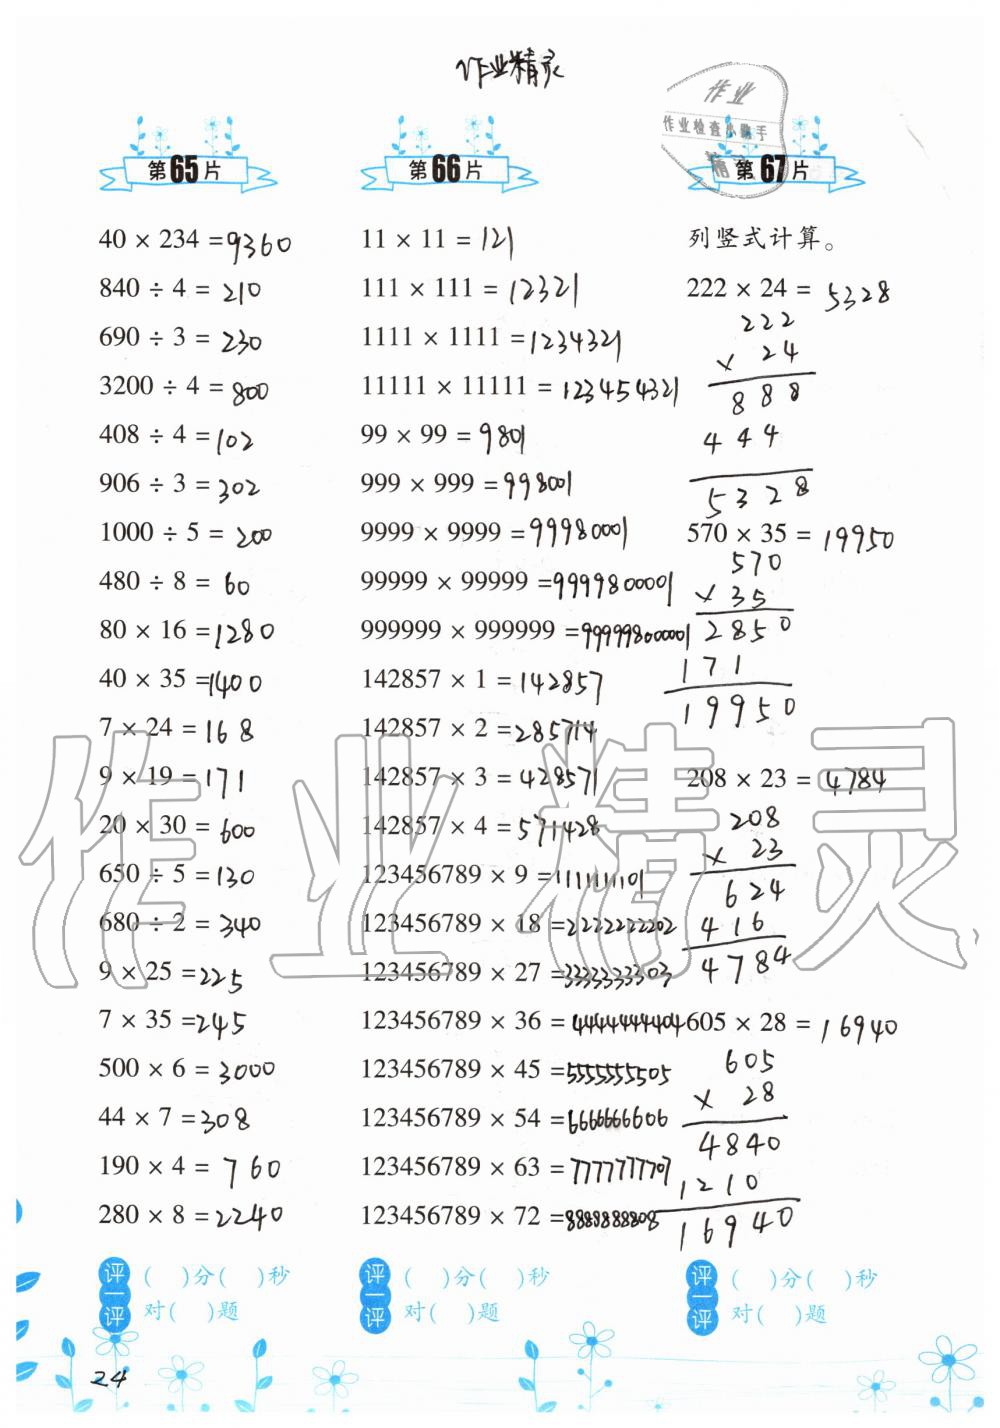 作业精灵
作业
作业检查小助手
第65片
40 × 234 = 9360
840 ÷ 4 = 210
690 ÷ 3 = 230
3200 ÷ 4 = 800
408 ÷ 4 = 102
906 ÷ 3 = 302
1000 ÷ 5 = 200
480 ÷ 8 = 60
80 × 16 = 1280
40 × 35 = 1400
7 × 24 = 168
9 × 19 = 171
20 × 30 = 600
650 ÷ 5 = 130
680 ÷ 2 = 340
9 × 25 = 225
7 × 35 = 245
500 × 6 = 3000
44 × 7 = 308
190 × 4 = 760
280 × 8 = 2240
评一评
( )分( )秒
对( )题
第66片
11 × 11 = 121
111 × 111 = 12321
1111 × 1111 = 1234321
11111 × 11111 = 123454321
99 × 99 = 9801
999 × 999 = 998001
9999 × 9999 = 99980001
99999 × 99999 = 9999800001
999999 × 999999 = 999998000001
142857 × 1 = 142857
142857 × 2 = 285714
142857 × 3 = 428571
142857 × 4 = 571428
123456789 × 9 = 1111111101
123456789 × 18 = 2222222202
123456789 × 27 = 3333333303
123456789 × 36 = 4444444404
123456789 × 45 = 5555555505
123456789 × 54 = 6666666606
123456789 × 63 = 7777777707
123456789 × 72 = 8888888808
评一评
( )分( )秒
对( )题
第67片
列竖式计算。
222 × 24 = 5328
222
× 24
888
444
5328
570 × 35 = 19950
570
× 35
2850
171
19950
208 × 23 = 4784
208
× 23
624
416
4784
605 × 28 = 16940
605
× 28
4840
1210
16940
评一评
( )分( )秒
对( )题
24
作业精灵